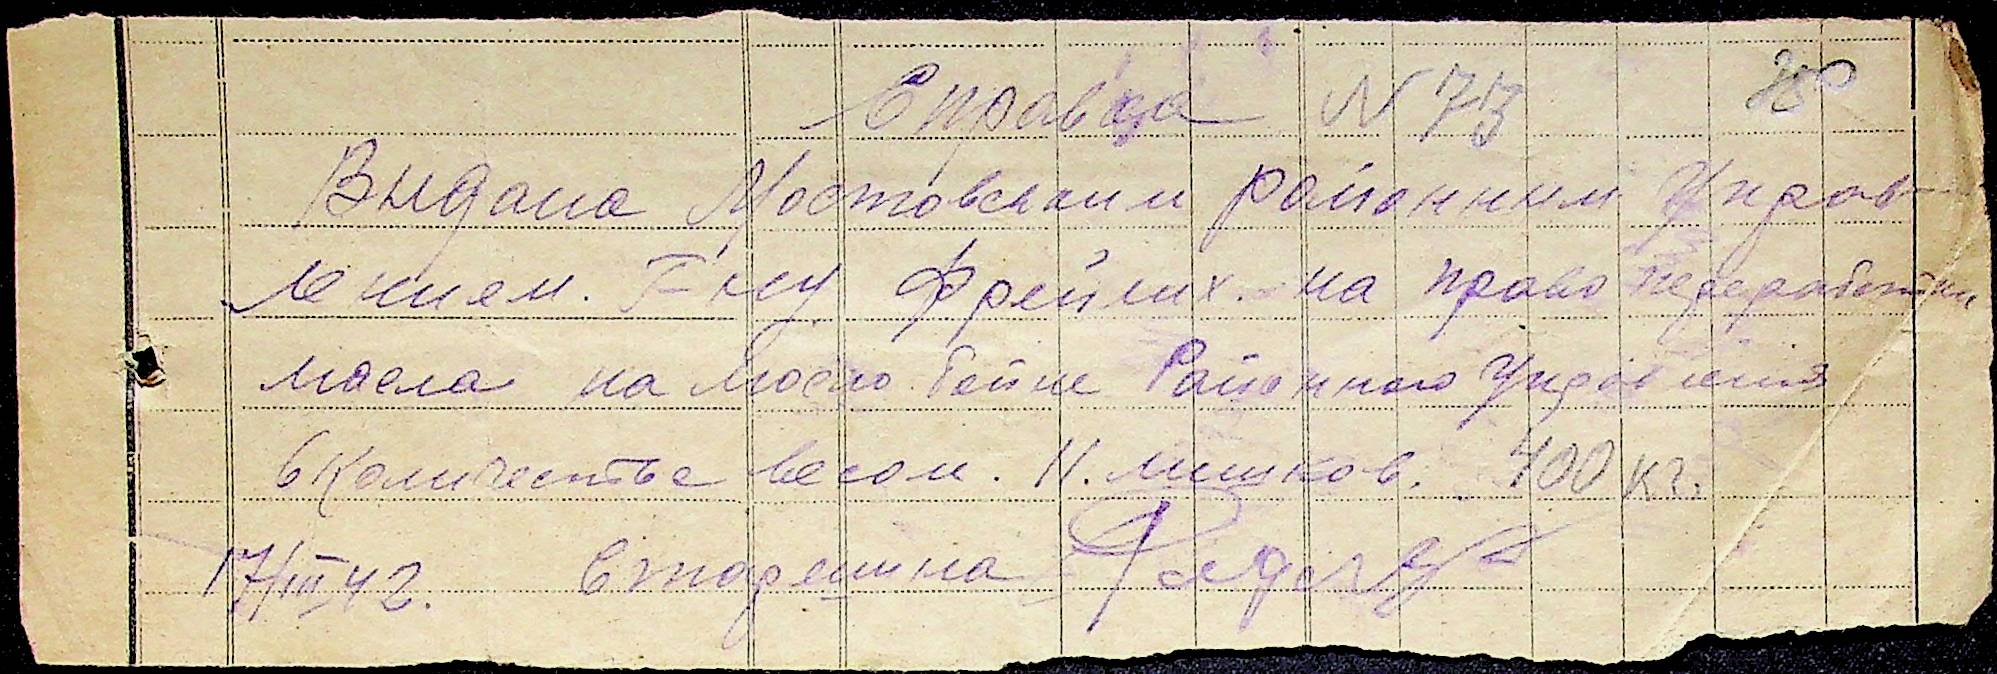 Справка N 73
Выдана Мостовским районным Управ-
лением. Г-ну Фрейних. на право переработки
масла на Масло бойне Районного Управления
в количестве весом. 11. мешков. 400 кг.
17/III 42. Старшина